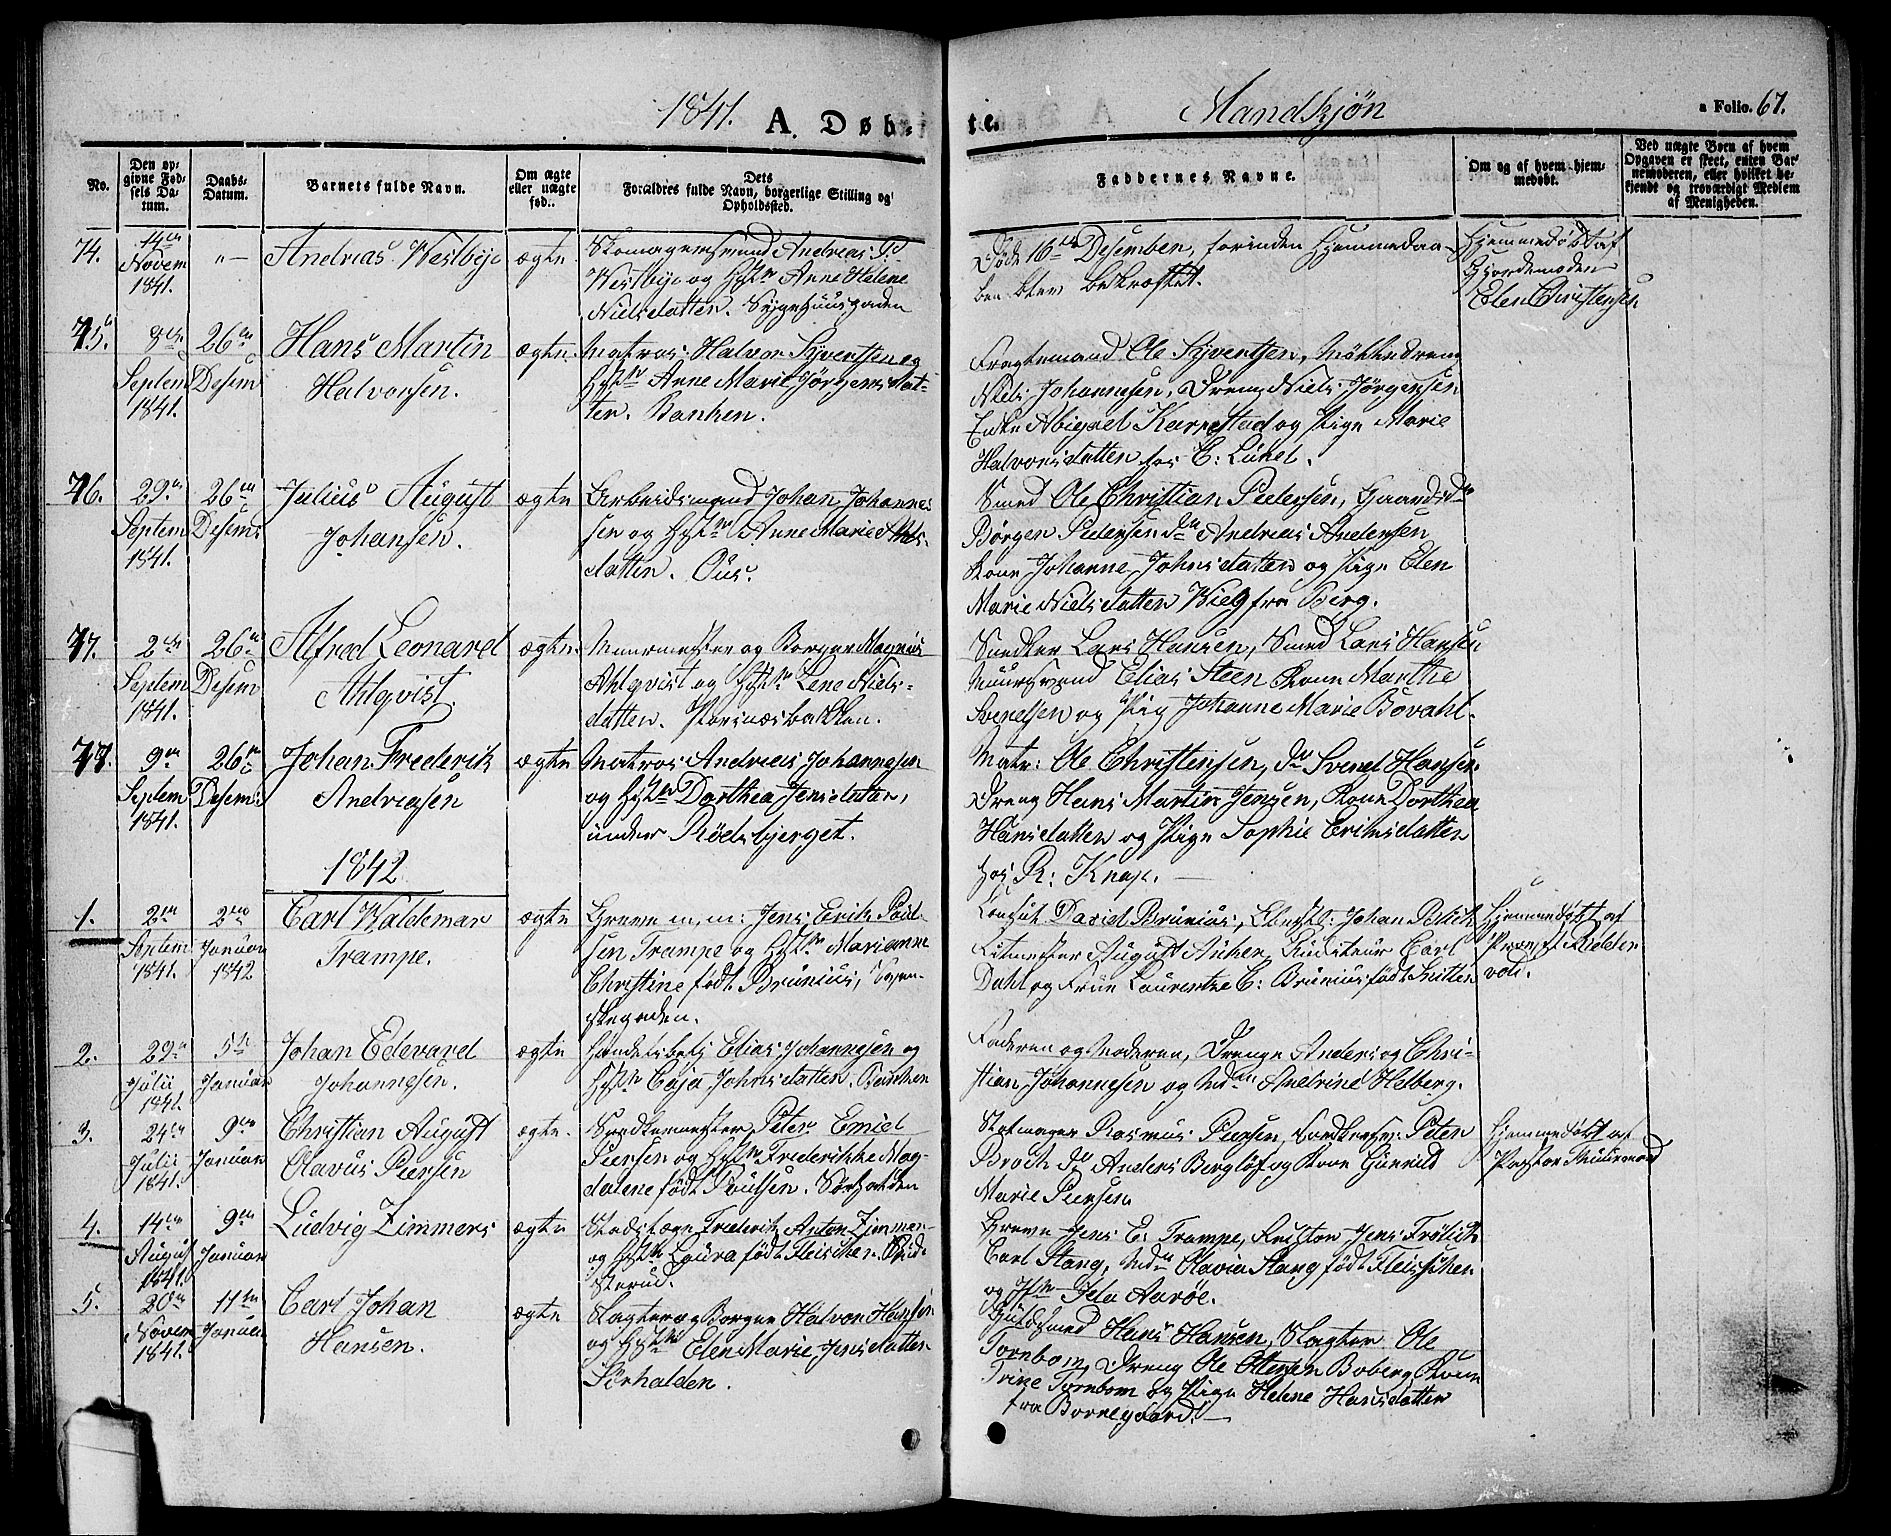 1841. A. Døb- te. Mandkjøn a Folio. 67.
No.
Den opgivne Fødsels Datum.
Daabs-Datum.
Barnets fulde Navn.
Om ægte eller uægte fød..
Dets Forældres fulde Navn, borgerlige Stilling og Opholdssted.
Faddernes Navne.
Om og af hvem hjemmedøbt.
Ved uægte Børn af hvem Opgaven er skeet, enten Barnemoderen, eller hvilket bekjendt og troværdigt Medlem af Menigheden.
74.
14de
Novem
1841.
"—
Andreas Westbye
ægte
Skomagersvend Andreas P.
Westbye og Hst Anne Helene
Nielsdatter. Sygehuusgaden
Døde 16de Desember, forinden Hjemmedaa-
ben blev bekræftet.
Hjemmedøbt af
Gjordemoder
Elen Christensen
75.
8de
Septem
1841.
26de
Desem
Hans Martin
Halvorsen.
ægte.
Matros Halvor Syvertsen og
Hst Anne Marie Jørgensdat-
ter. Banken.
Fragtemand Ole Syvertsen,
Niels Johannesen, Dreng Niels Jørgensen
Enke Abigael Karrestad og Pige Marie
Halvorsdatter hos C: Lükel.
76.
29de
Septem
1841.
26de
Desemb
Julius August
Johansen.
ægte
Arbeidsmand Johan Johannes-
sen og Hst Anne Marie
datter. Øus.
Smed Ole Christian Pedersen, Gaards
Børger Pedersen do Andreas Andersen
Kone Johanne Johnsdatter og Pige Elen
Marie Nielsdatter Wieg fra Berg.
77.
2den
Septem
1841.
26de
Desem
Alfred Leonard
Ahlqvist.
ægte.
Muurmester og Borger Magnus
Ahlqvist og Hst Lene Niels-
datter. Porsnæsbakken.
Snedker Lars Hansen, Smed Lars Hansen
Muursvend Elias Steen Kone Marthe
Svendsen og Pig Johanne Marie Bovahl.
9de
Septem
1841.
26de
Desem:
Johan Frederik
Andreasen
ægte
Matros Andreas Johannesen
og Hst Dorthea Jensdatter,
under Rødsbjerget.
Matr: Ole Christensen, do Svend Hansen
Dreng Hans Martin Jensen, Kone Dorthea
Hansdatter og Pige Sophie Erichsdatter
hos R: Knap. —
1842
1.
2den
Septem
1841.
2den
Januar
1842
Carl Waldemar
Trampe.
ægte
Greve m. m: Jens Erik Paul-
sen Trampe og Hst Marianne
Christine født Brunius, Sven-
skegaden.
Consul David Brunius, Johan
Ritmester August Anker, Auditeur Carl
Dahl og Frue Laurentze C: Brunius født
Hjemmedøbt af
Provst Ridder-
vold.
2.
29de
Julii
1841.
5te
Januar
Johan Edevard
Johannesen.
ægte
Handelsbetj Elias Johannesen og
Hst Caja Johnsdatter. Banken
Faderen og Moderen, Drenge Anders og Chri-
stian Johannesen og Andrine Helberg.
3.
24de
Julii
1841.
9de
Januar
Christian August
Olavus Piersen
ægte.
Snedkermester Peter Emiel
Piersen og Hst Frederikke Mag-
dalene født Poulsen. Sørhalden
Skomager Rasmus Piersen, Peter
Broch do Anders Bergløf og Kone Gunnild
Marie Piersen
Hjemmedøbt af
Pastor
4.
14de
August
1841.
9de
Januar
Ludvig Zimmers
ægte
Frederik Anton Zimmer-
og Hst Laura født Fleischer.
Greve Jens E: Trampe, Jens Frølich
Carl Stang, Olavia Stang født Fleischer
og Ida Aarøe.
5.
20de
Novem
1841.
11te
Januar
Carl Johan
Hansen.
ægte
Slagter og Borger Halvor Hansen
og Hst Elen Marie Jensdatter
Sørhalden.
Guldsmed Hans Hansen, Slagter Ole
Tornbom, Dreng Ole Boberg Kone
Trine Tornbom og Pige Helene Hansdatter
fra Bornegaard. —